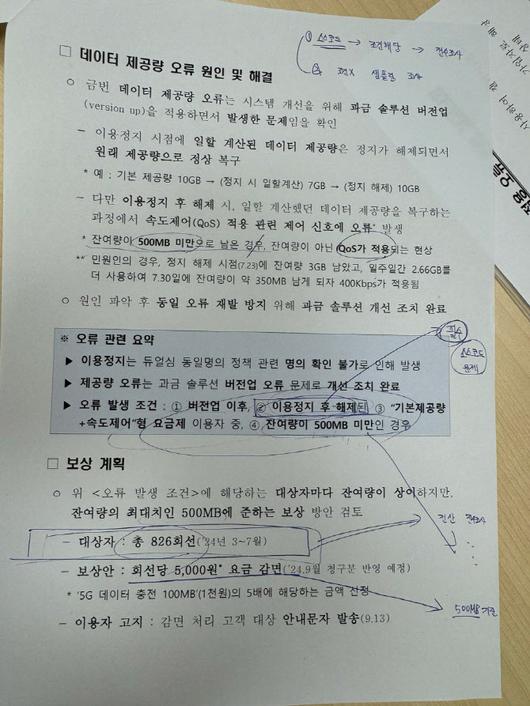 ① 소스코드 → 조건해당 → 전수조사
② 조건X 샘플링 조사
□ 데이터 제공량 오류 원인 및 해결
○ 금번 데이터 제공량 오류는 시스템 개선을 위해 과금 솔루션 버전업
(version up)을 적용하면서 발생한 문제임을 확인
- 이용정지 시점에 일할 계산된 데이터 제공량은 정지가 해제되면서
원래 제공량으로 정상 복구
* 예 : 기본 제공량 10GB → (정지 시 일할계산) 7GB → (정지 해제) 10GB
- 다만 이용정지 후 해제 시, 일할 계산했던 데이터 제공량을 복구하는
과정에서 속도제어(QoS) 적용 관련 제어 신호에 오류* 발생
* 잔여량이 500MB 미만으로 남은 경우, 잔여량이 아닌 QoS가 적용되는 현상
** 민원인의 경우, 정지 해제 시점(7.23)에 잔여량 3GB 남았고, 일주일간 2.66GB를
더 사용하여 7.30일에 잔여량이 약 350MB 남게 되자 400Kbps가 적용됨
○ 원인 파악 후 동일 오류 재발 방지 위해 과금 솔루션 개선 조치 완료
※ 오류 관련 요약
▶ 이용정지는 듀얼심 동일명의 정책 관련 명의 확인 불가로 인해 발생
▶ 제공량 오류는 과금 솔루션 버전업 오류 문제로 개선 조치 완료
▶ 오류 발생 조건 : ① 버전업 이후, ② 이용정지 후 해제된 ③ "기본제공량
+속도제어"형 요금제 이용자 중, ④ 잔여량이 500MB 미만인 경우
소스코드
문제
□ 보상 계획
○ 위 <오류 발생 조건>에 해당하는 대상자마다 잔여량이 상이하지만,
잔여량의 최대치인 500MB에 준하는 보상 방안 검토
- 대상자 : 총 826회선('24년 3~7월)
전산 전수조사
- 보상안 : 회선당 5,000원* 요금 감면('24.9월 청구분 반영 예정)
* '5G 데이터 충전 100MB'(1천원)의 5배에 해당하는 금액 산정
500MB 기준
- 이용자 고지 : 감면 처리 고객 대상 안내문자 발송(9.13)